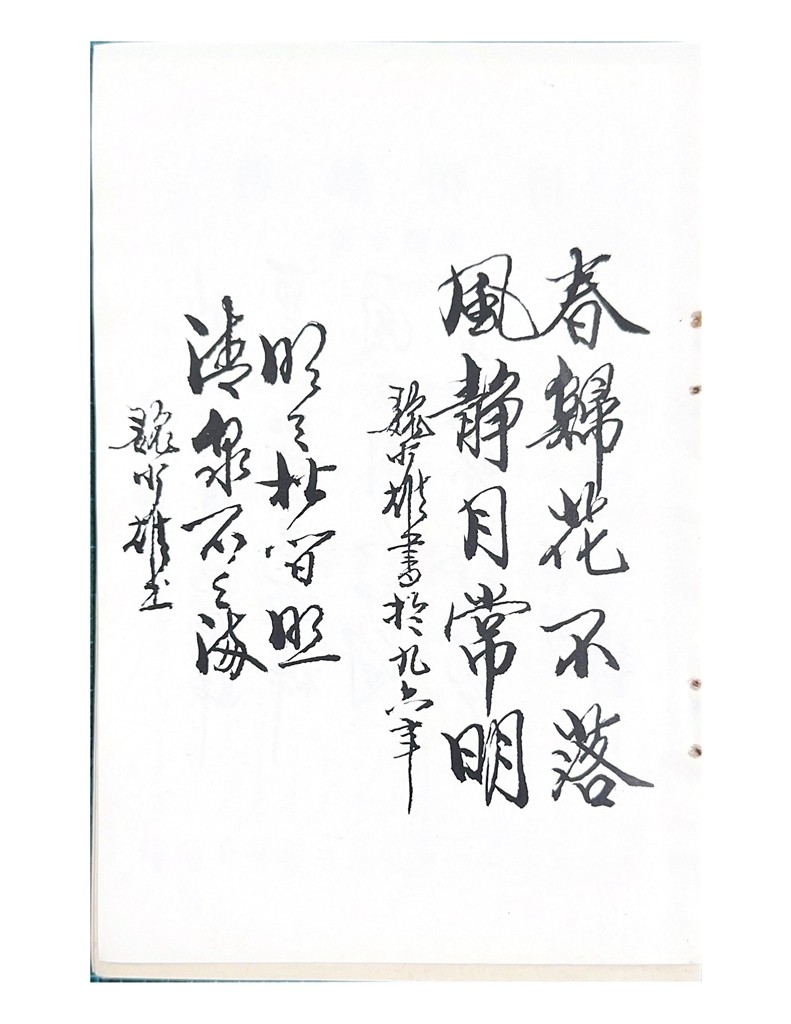 春歸花不落
風靜月常明
魏雄書於九六年
明月松間照
清泉石上流
魏雄書